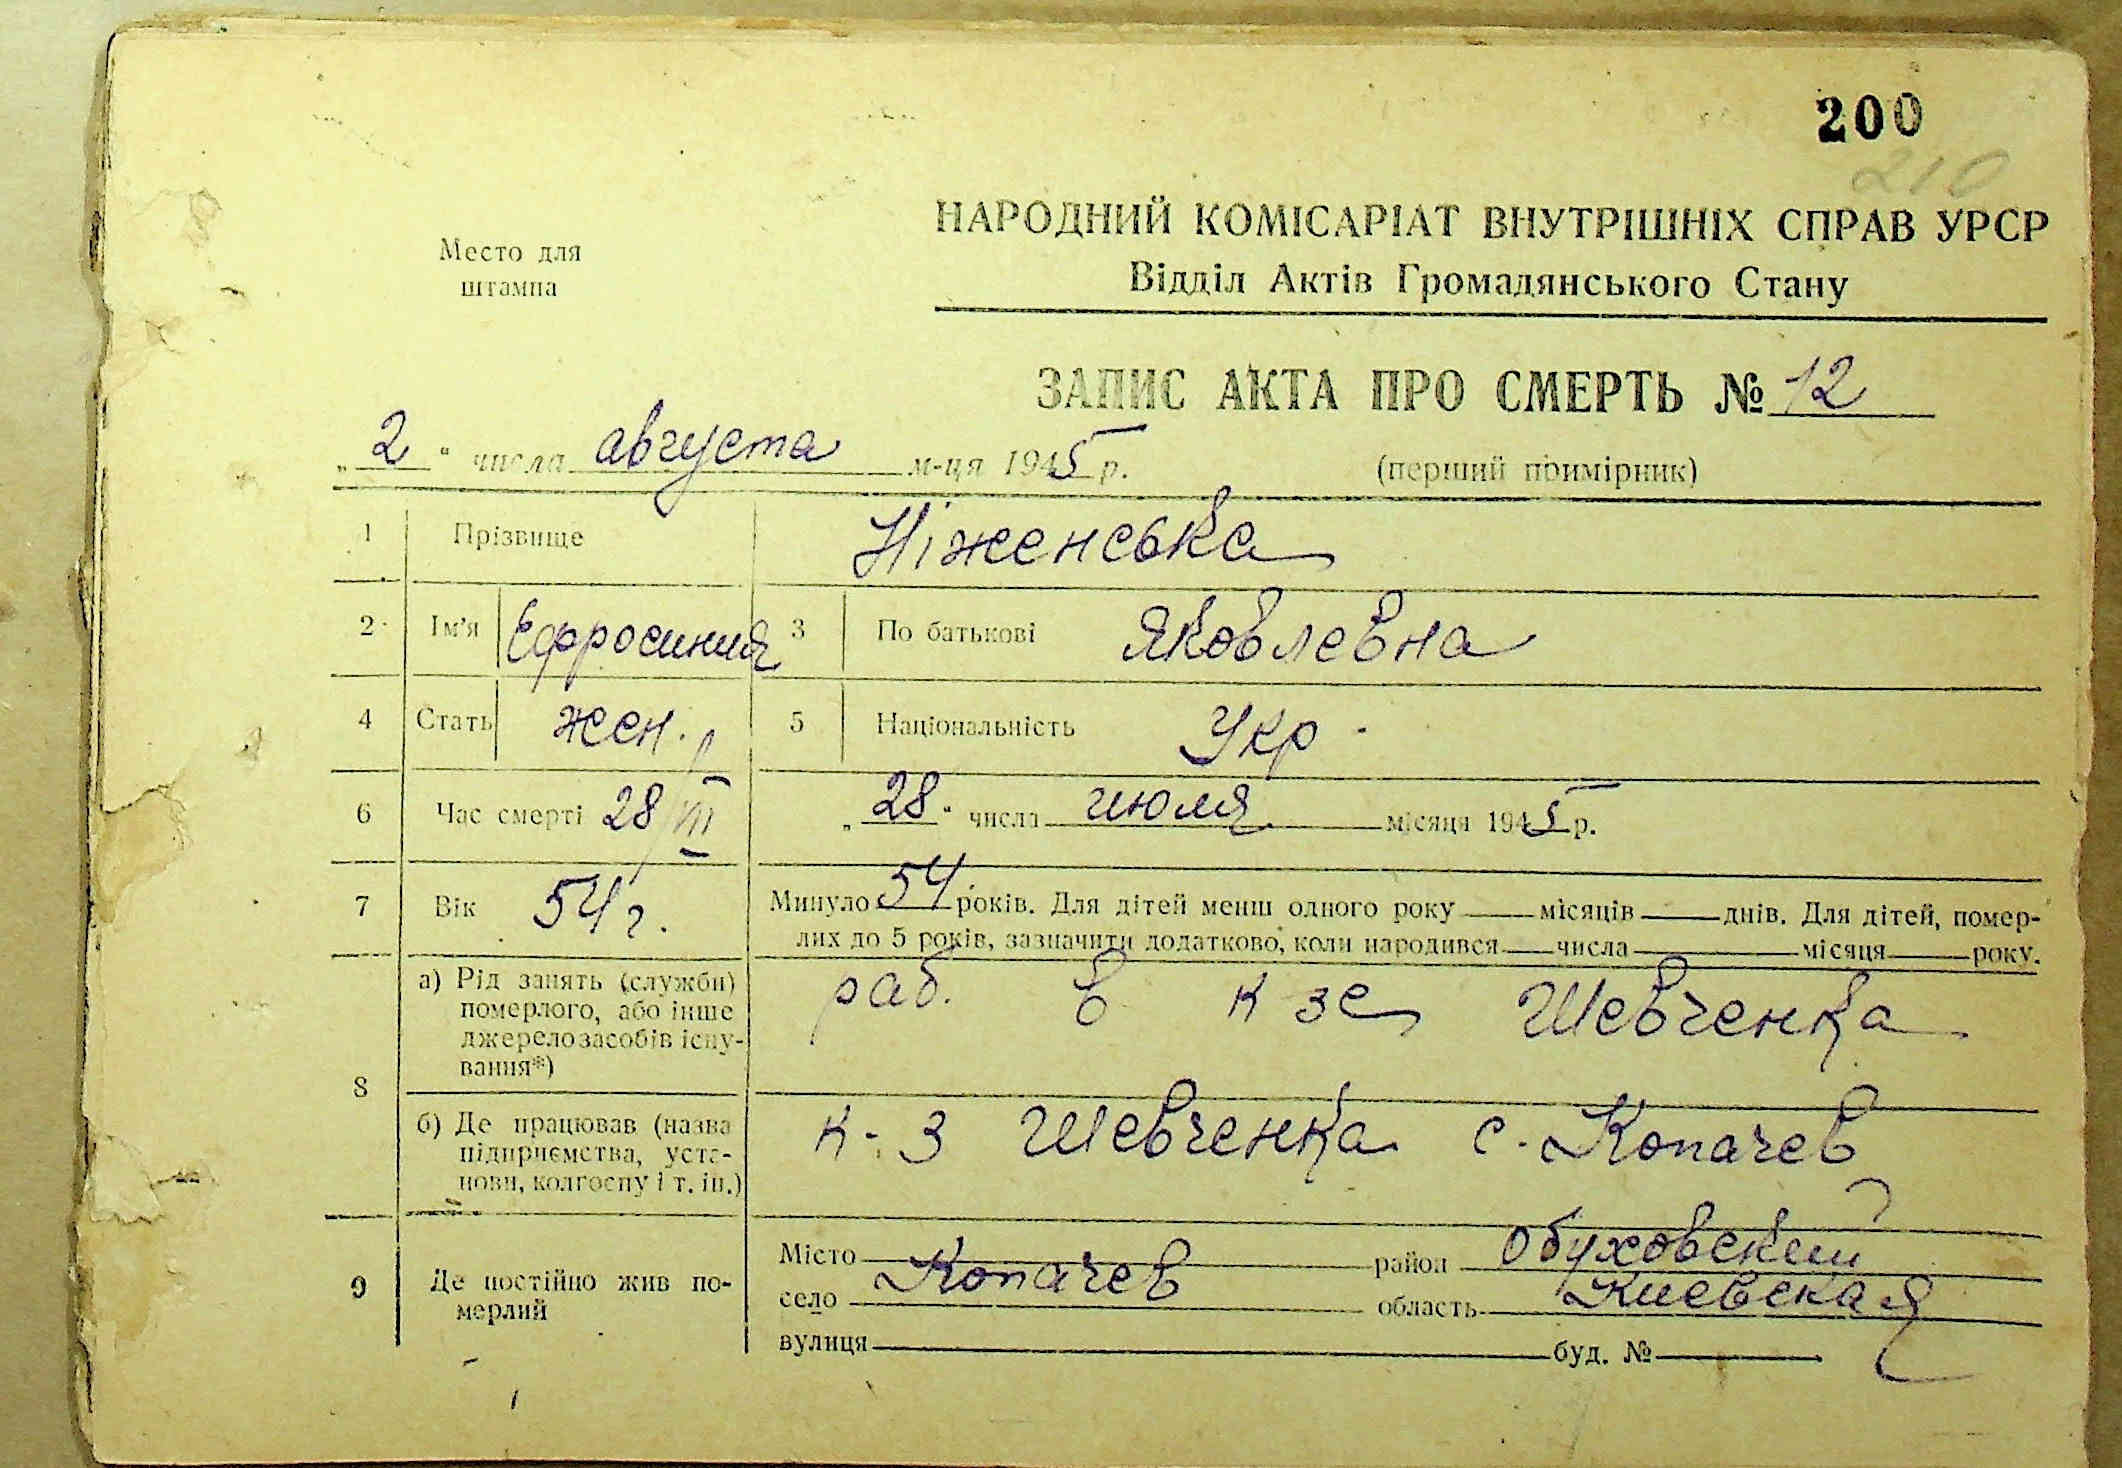 200
210
Место для
штампа
НАРОДНИЙ КОМІСАРІАТ ВНУТРІШНІХ СПРАВ УРСР
Відділ Актів Громадянського Стану
ЗАПИС АКТА ПРО СМЕРТЬ № 12
„2“ числа августа м-ця 1945 р.
(перший примірник)
1 Прізвище Ніженська
2 Ім'я Ефросиния 3 По батькові Яковлевна
4 Стать жен. 5 Національність Укр.
6 Час смерті 28/VII „28“ числа июля місяця 1945 р.
7 Вік 54 г. Минуло 54 років. Для дітей менш одного року місяців днів. Для дітей, помер-
лих до 5 років, зазначити додатково, коли народився числа місяця року.
8
а) Рід занять (служби)
померлого, або інше
джерело засобів існу-
вання*)
раб. в к зе Шевченка
б) Де працював (назва
підприємства, уста-
нови, колгоспу і т. ін.)
к-з Шевченка с. Копачев
9 Де постійно жив по-
мерлий
Місто район Обуховский
село Копачев область Киевская
вулиця буд. №